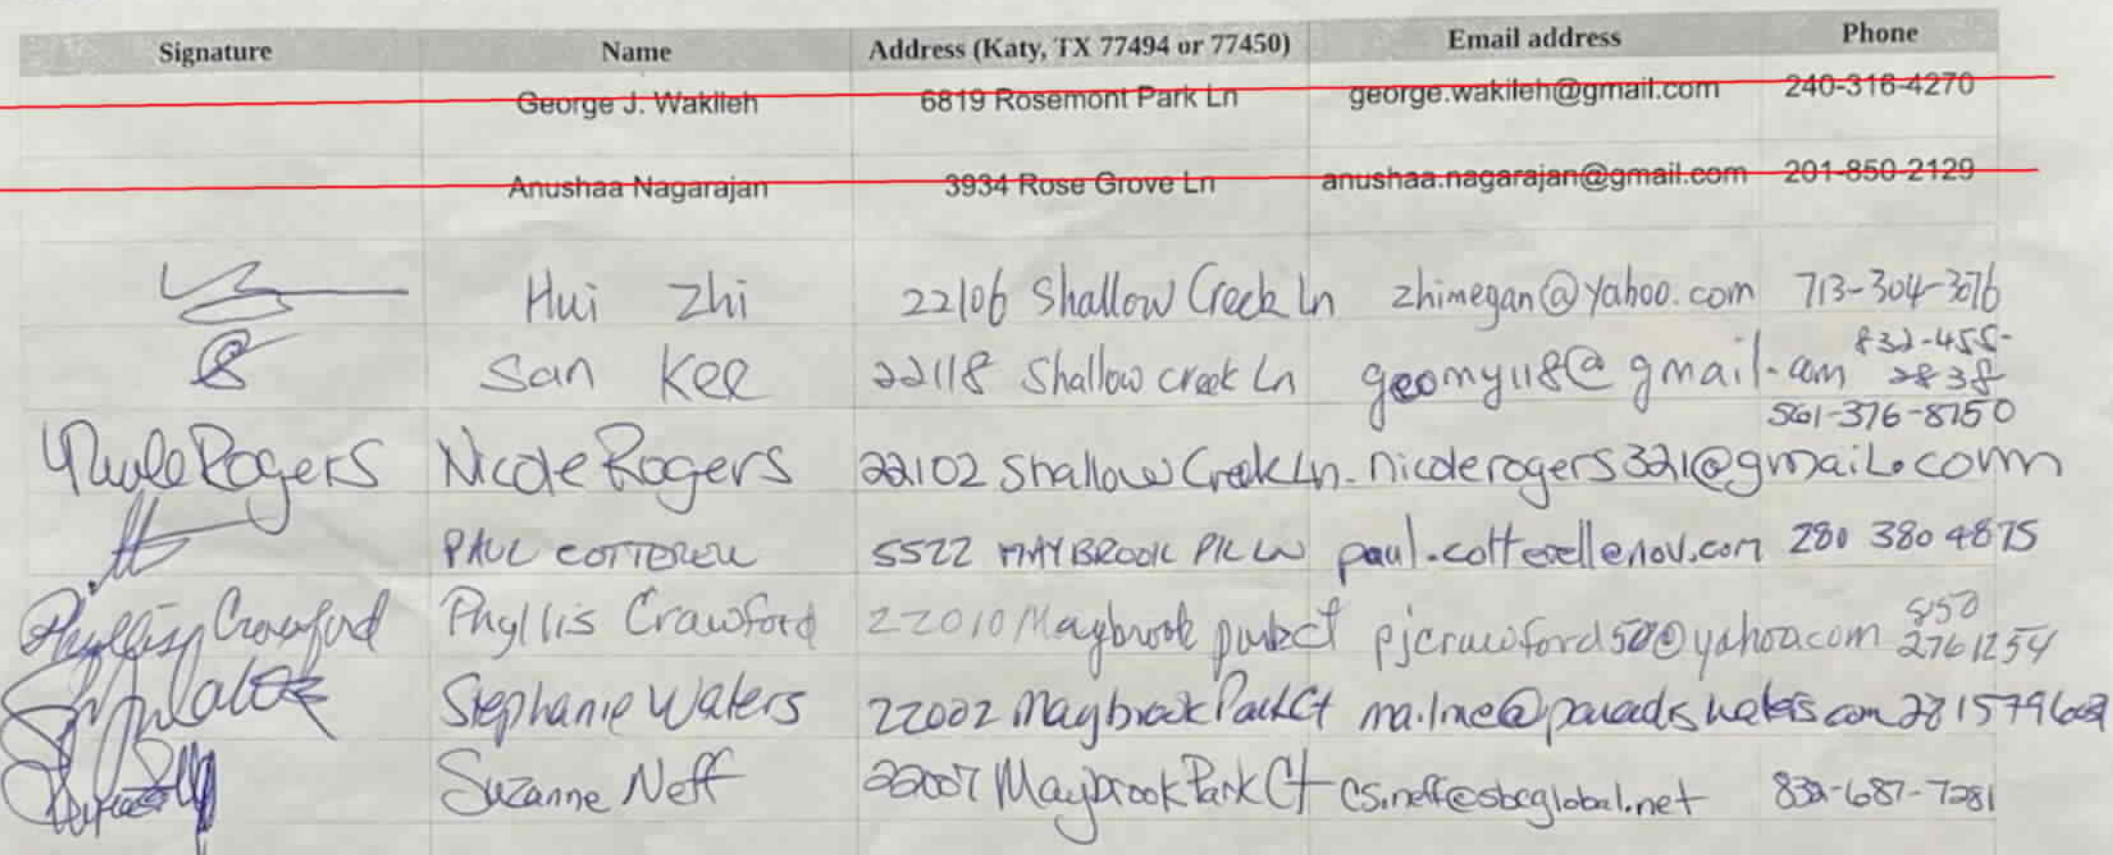 Signature Name Address (Katy, TX 77494 or 77450) Email address Phone
George J. Wakileh 6819 Rosemont Park Ln george.wakileh@gmail.com 240-316-4270
Anushaa Nagarajan 3934 Rose Grove Ln anushaa.nagarajan@gmail.com 201-850-2129
Hui Zhi 22106 Shallow Creek Ln zhimegan@yahoo.com 713-304-3076
San Kee 22118 Shallow creek Ln geomy118@gmail.com 832-455-
2838
561-376-8750
Nicole Rogers Nicole Rogers 22102 Shallow Creek Ln. nicolerogers321@gmail.com
PAUL COTTERELL 5522 MAYBROOK PK LN paul.cotterell@nov.com 280 380 4875
Phyllis Crawford Phyllis Crawford 22010 Maybrook park ct pjcrawford50@yahoo.com 850
2761254
Stephanie Waters 22002 Maybrook Park Ct
Suzanne Neff 22007 Maybrook Park Ct cs.neff@sbcglobal.net 832-687-7281